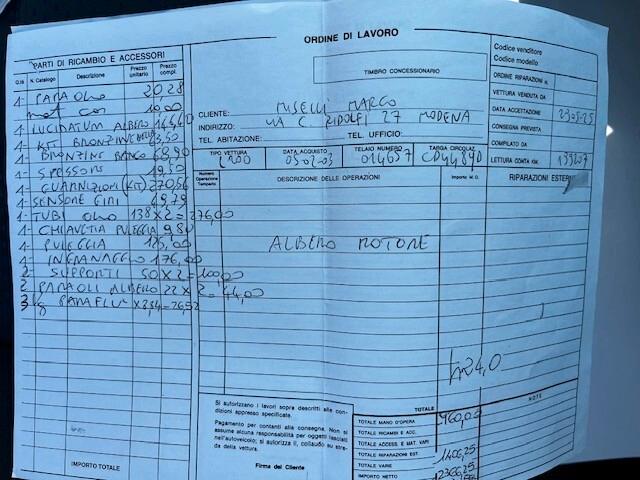 ORDINE DI LAVORO
PARTI DI RICAMBIO E ACCESSORI
Q.tà N. Catalogo Descrizione Prezzo unitario Prezzo compl.
1 PARAOLIO 20,28
10,00
1 LUCIDATURA ALBERO
1 KIT BRONZINE BIELLA 63,50
1 BRONZINE BANCO 68,90
1 SPESSORI 19,50
1 GUARNIZIONI (KIT) 270,56
1 SENSORE GIRI 49,79
1 TUBI OLIO 138 X 2 = 276,00
1 CHIAVETTA PULEGGIA 9,80
1 PULEGGIA 125,00
1 INGRANAGGIO 176,00
2 SUPPORTI 50 X 2 = 100,00
2 PARAOLI ALBERO 22 X 2 = 44,00
IMPORTO TOTALE
TIMBRO CONCESSIONARIO
CLIENTE: MISELLI MARCO
INDIRIZZO: VIA C. RIDOLFI 27 MODENA
TEL. ABITAZIONE: TEL. UFFICIO:
Codice venditore
Codice modello
ORDINE RIPARAZIONI n.
VETTURA VENDUTA DA
DATA ACCETTAZIONE 23-05-25
CONSEGNA PREVISTA
COMPILATO DA
LETTURA CONTA KM.
TIPO VETTURA DATA ACQUISTO TELAIO NUMERO TARGA CIRCOLAZ.
05-07-03 014657 CD448YD
Numero Operazione Tempario DESCRIZIONE DELLE OPERAZIONI Importo M.O. RIPARAZIONI ESTERNE
ALBERO MOTORE
h 24,0
Si autorizzano i lavori sopra descritti alle condizioni appresso specificate.
Pagamento per contanti alla consegna. Non si assume alcuna responsabilità per oggetti lasciati nell'autoveicolo; si autorizza il collaudo su strada della vettura.
Firma del Cliente
TOTALE
NOTE
TOTALE MANO D'OPERA 960,00
TOTALE RICAMBI E ACC.
TOTALE ACCESS. E MAT. VARI
TOTALE RIPARAZIONI EST.
TOTALE VARIE
IMPORTO NETTO